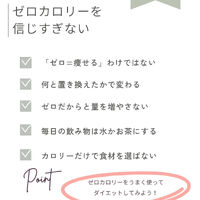 ゼロカロリーを
信じすぎない
「ゼロ＝痩せる」わけではない
何と置き換えたかで変わる
ゼロだからと量を増やさない
毎日の飲み物は水かお茶にする
カロリーだけで食材を選ばない
Point
ゼロカロリーをうまく使って
ダイエットしてみよう！